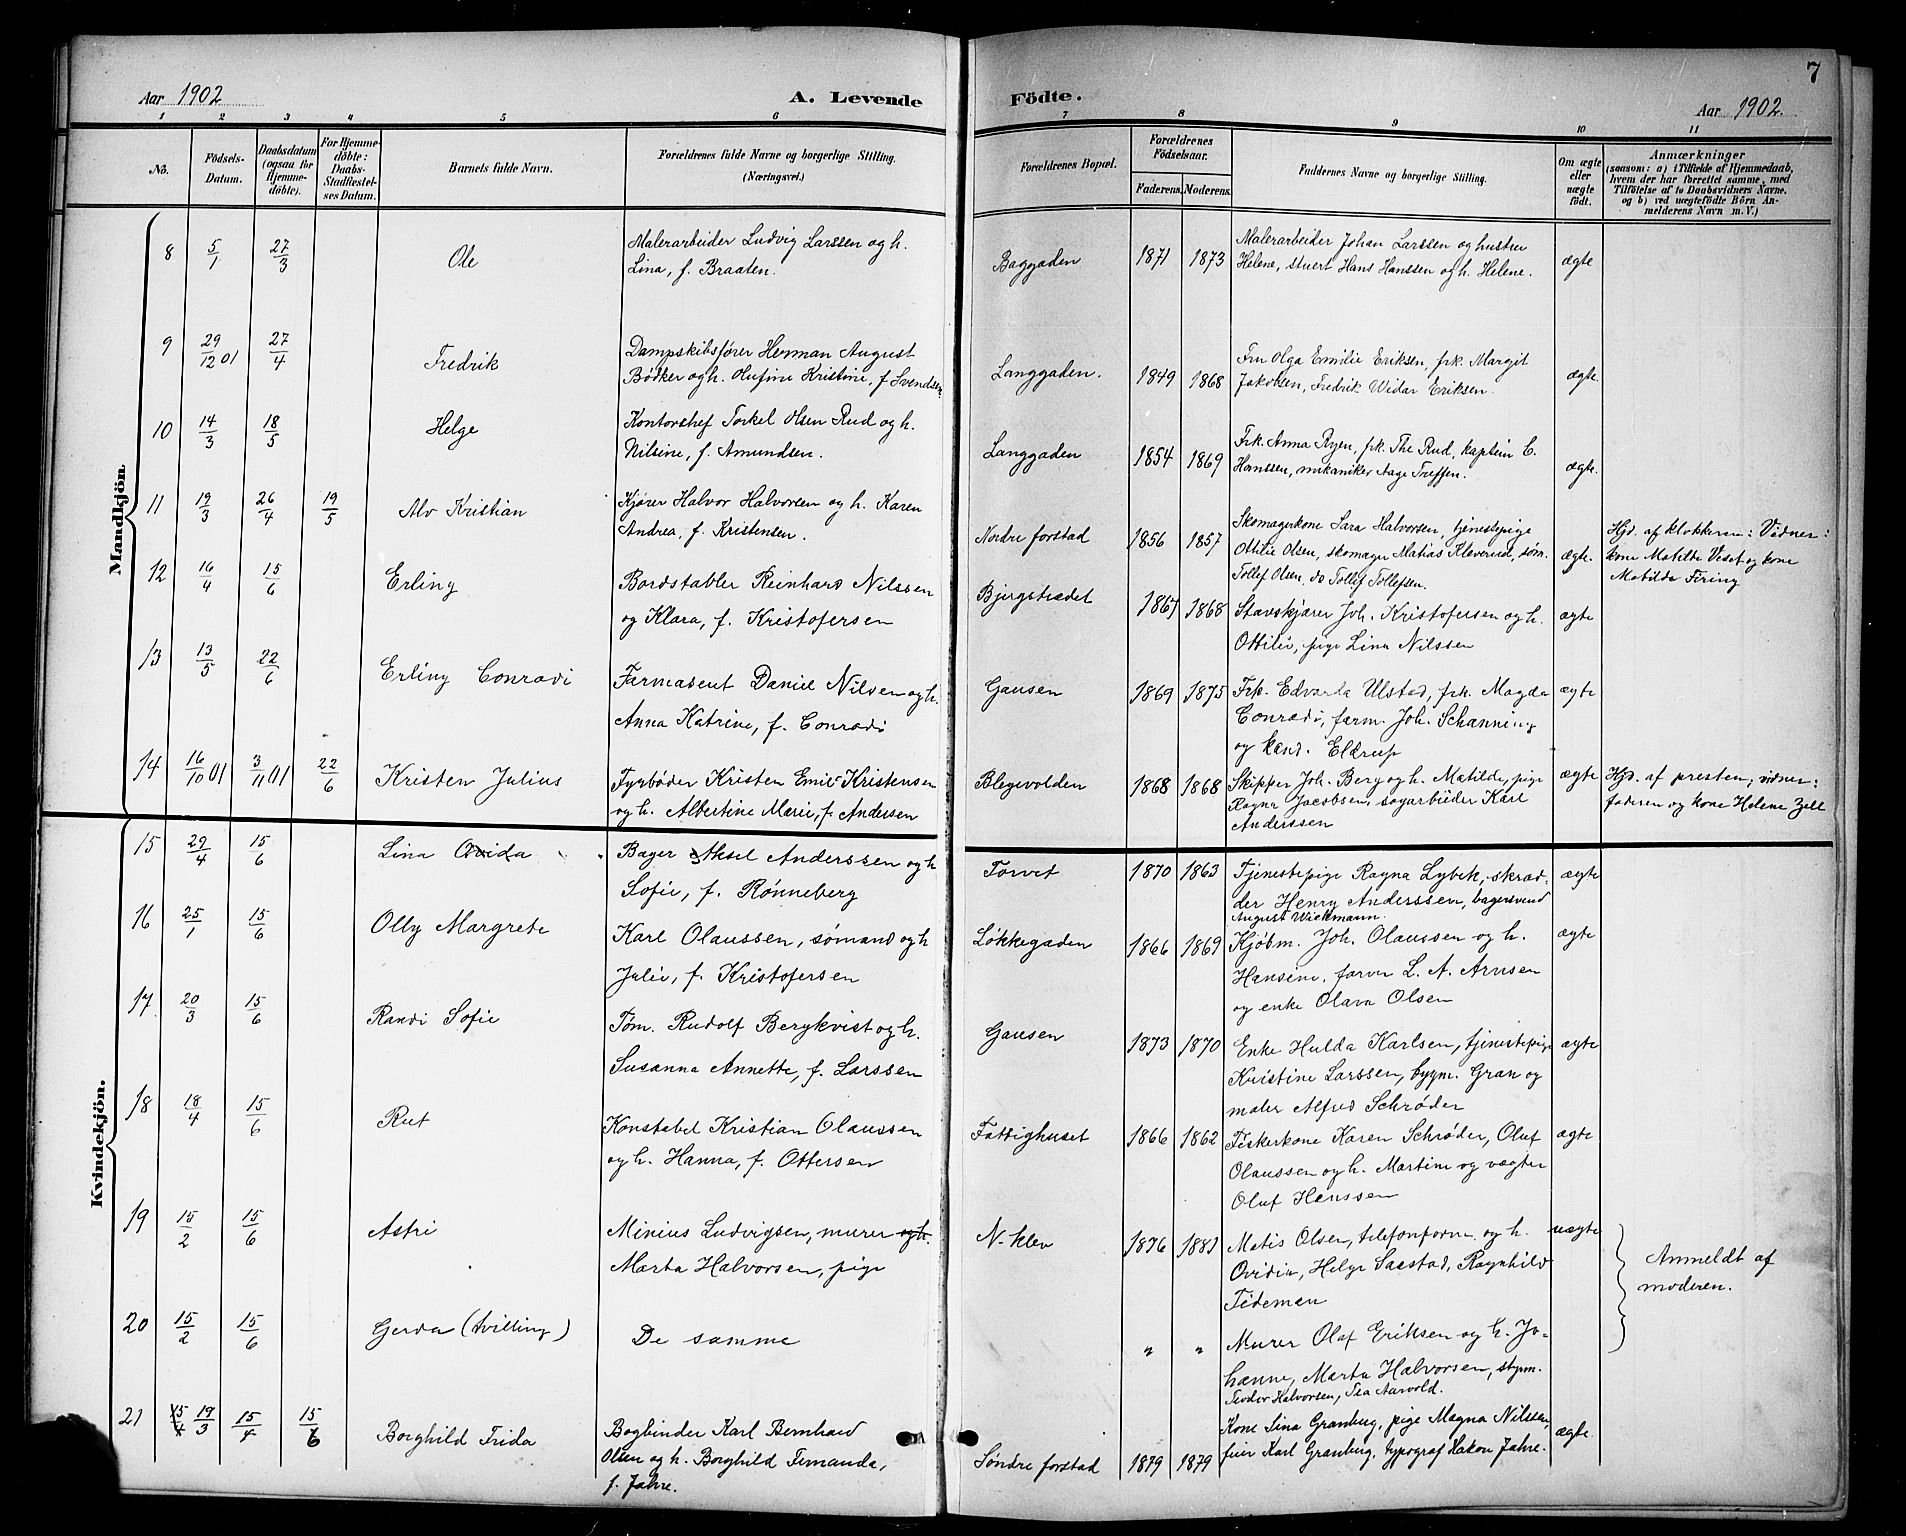 7
Aar 1902
A. Levende
Födte.
Aar 1902.
1 2 3 4 5 6 7 8 9 10 11
No.
Födsels-
Datum.
Daabsdatum
(ogsaa for
Hjemme-
döbte).
For Hjemme-
döbte:
Daabs-
Stadfæstel-
ses Datum.
Barnets fulde Navn.
Forældrenes fulde Navne og borgerlige Stilling.
(Næringsvei.)
Forældrenes Bopæl.
Forældrenes
Födselsaar.
Faderens. Moderens.
Faddernes Navne og borgerlige Stilling.
Om ægte
eller
uægte
födt.
Anmærkninger
(saasom: a) i Tilfælde af Hjemmedaab,
hvem der har forrettet samme, med
Tilföielse af to Daabsvidners Navne.
og b) ved uægtefödte Börn An-
melderens Navn m. V.)
Mandkjön.
8 5/1 27/3 Ole
Malerarbeider Ludvig Larssen og h.
Lina, f. Braaten.
Baggaden 1871 1873
Malerarbeider Johan Larssen og hustru
Helene, stuert Hans Hanssen og h. Helene.
ægte
9 29/12 01 27/4 Fredrik
Dampskibsfører Herman August
Bödker og h. Olufine Kristine, f. Svendsen
Langgaden. 1849 1868
Fru Olga Emilie Eriksen, frk. Margit
Jakobsen, Fredrik Widar Eriksen.
ægte.
10 14/3 18/5 Helge
Kontorchef Torkel Olsen Rud og h.
Nilsine, f. Amundsen.
Langgaden 1854 1869
Frk. Anna Ryen, frk. The Rud, kaptein C.
Hanssen, mekaniker Aage Treffen.
ægte.
11 19/3 26/4 19/5 Alv Kristian
Kjører Halvor Halvorsen og h. Karen
Andrea, f. Kristensen.
Nordre forstad 1856 1857
Skomagerkone Sara Halvorsen, tjenestepige
Ottilie Olsen, skomager Matias Kleverud, søm.
Tollef Olsen, do Tollef Tollefsen.
ægte.
Hjd. af klokkeren: Vidner:
kone Matilde Veset og kone
Matilda Firing
12 16/4 15/6 Erling
Bordstabler Reinhard Nilssen
og Klara, f. Kristofersen
Bjergstrædet 1867 1868
Stavskjører Joh. Kristofersen og h.
Ottilie, pige Lina Nilssen
ægte
13 13/5 22/6 Erling Conradi
Farmaceut Daniel Nilsen og h.
Anna Katrine, f. Conradi
Gausen 1869 1875
Frk. Edvarda Ulstad, frk. Magda
Conradi, farm. Joh. Schanning
og kand. Eldrup
ægte
14 16/10 01 3/11 01 22/6 Kristen Julius
Fyrbøder Kristen Emil Kristensen
og h. Albertine Marie, f. Andersen
Blegevolden 1868 1868
Skipper Joh. Berg og h. Matilde, pige
Ragna Jacobsen, sagarbeider Karl
Anderssen
ægte
Hjd. af presten; vidner:
faderen og kone Helene Zell
Kvindekjön.
15 29/4 15/6 Lina Ovida
Bager Aksel Anderssen og h
Sofie, f. Rønneberg
Torvet 1870 1863
Tjenestepige Ragna Lybek, skræd-
der Henry Anderssen, bagersvend
August Wickmann.
ægte
16 25/1 15/6 Olly Margrete
Karl Olaussen, sømand og h
Julie, f. Kristofersen
Løkkegaden 1866 1869
Kjøbm. Joh. Olaussen og h.
Hansine, farver L. A. Arnsen
og enke Olava Olsen
ægte
17 20/3 15/6 Randi Sofie
Tøm. Rudolf Bergkvist og h.
Susanna Annette, f. Larssen
Gausen 1873 1870
Enke Hulda Karlsen, tjenestepige
Kristine Larssen, bygm. Gran og
maler Alfred Schrøder
ægte
18 18/4 15/6 Rut
Konstabel Kristian Olaussen
og h. Hanna, f. Ottersen
Fattighuset 1866 1862
Fiskerkone Karen Schrøder, Oluf
Olaussen og h. Martine og vægter
Oluf Hanssen
ægte
19 15/2 15/6 Astri
Minius Ludvigsen, murer og h.
Marta Halvorsen, pige
N. klev 1876 1881
Matis Olsen, telefonform. og h.
Ovidia, Helge Saastad, Ragnhild
Tideman
uægte
Anmeldt af
moderen.
20 15/2 15/6 Gerda (tvilling)
De samme
" "
Murer Olaf Eriksen og h. Jo-
hanne, Marta Halvorsen, styrm.
Teodor Halvorsen, Tea Aarvold.
21 15/4 19/3 15/4 15/6 Borghild Frida
Bogbinder Karl Bernhard
Olsen og h. Borghild Fernanda,
f. Jahre.
Søndre forstad 1879 1879
Kone Lina Granberg, pige Magna Nilssen,
feier Karl Granberg, typograf Hakon Jahre.
ægte.